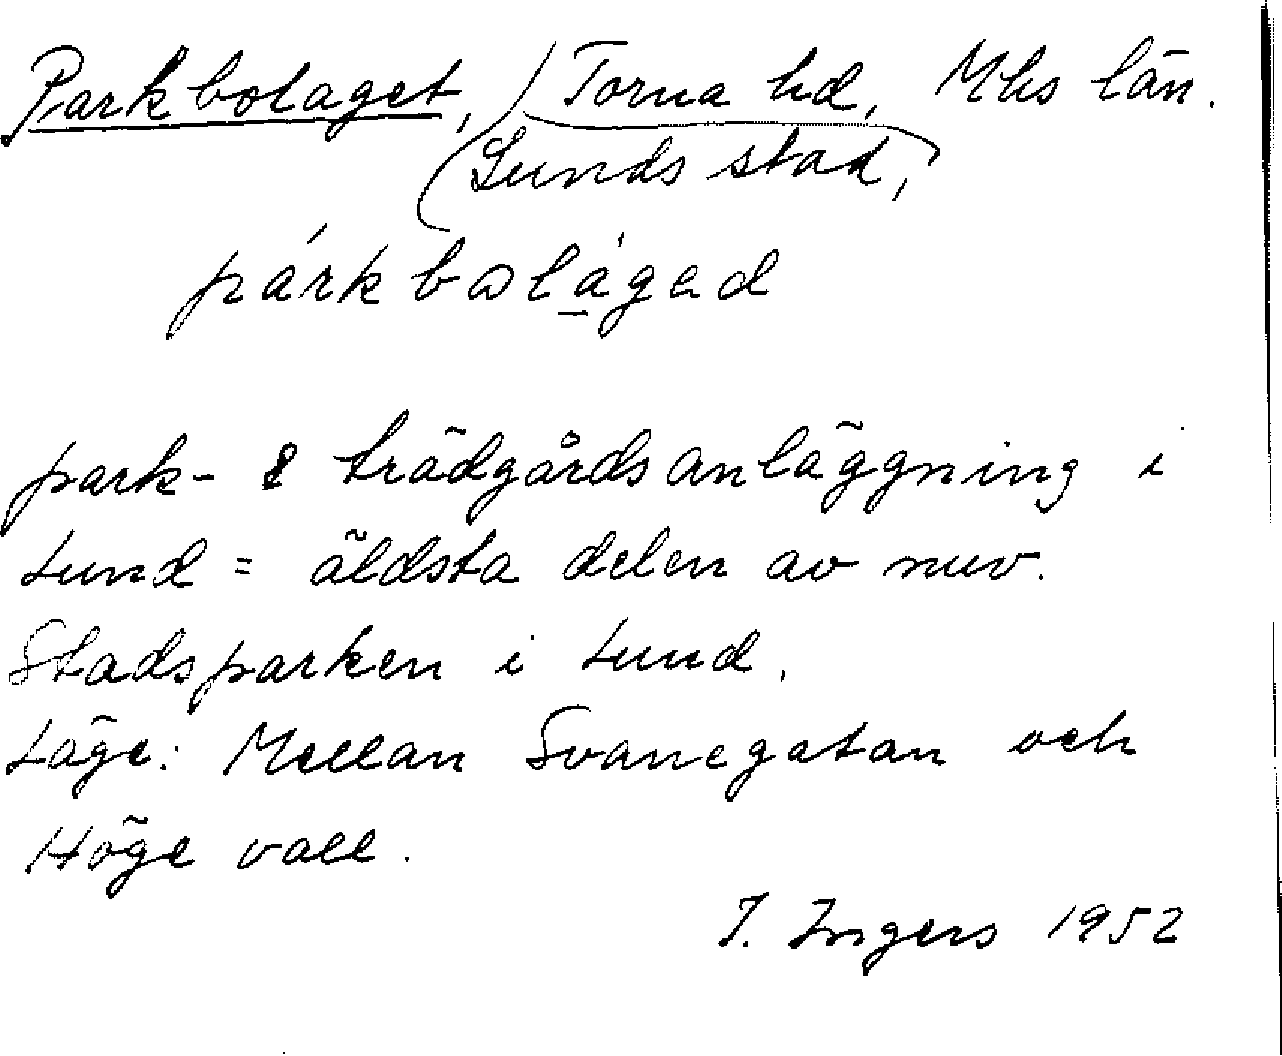 Parkbolaget, Torna hd, Mhs län.
(Lunds stad,)
párkbolágad
park- & trädgårdsanläggning i
Lund = äldsta delen av nuv.
Stadsparken i Lund.
Läge: Mellan Svanegatan och
Höge vall.
I. Ingers 1952